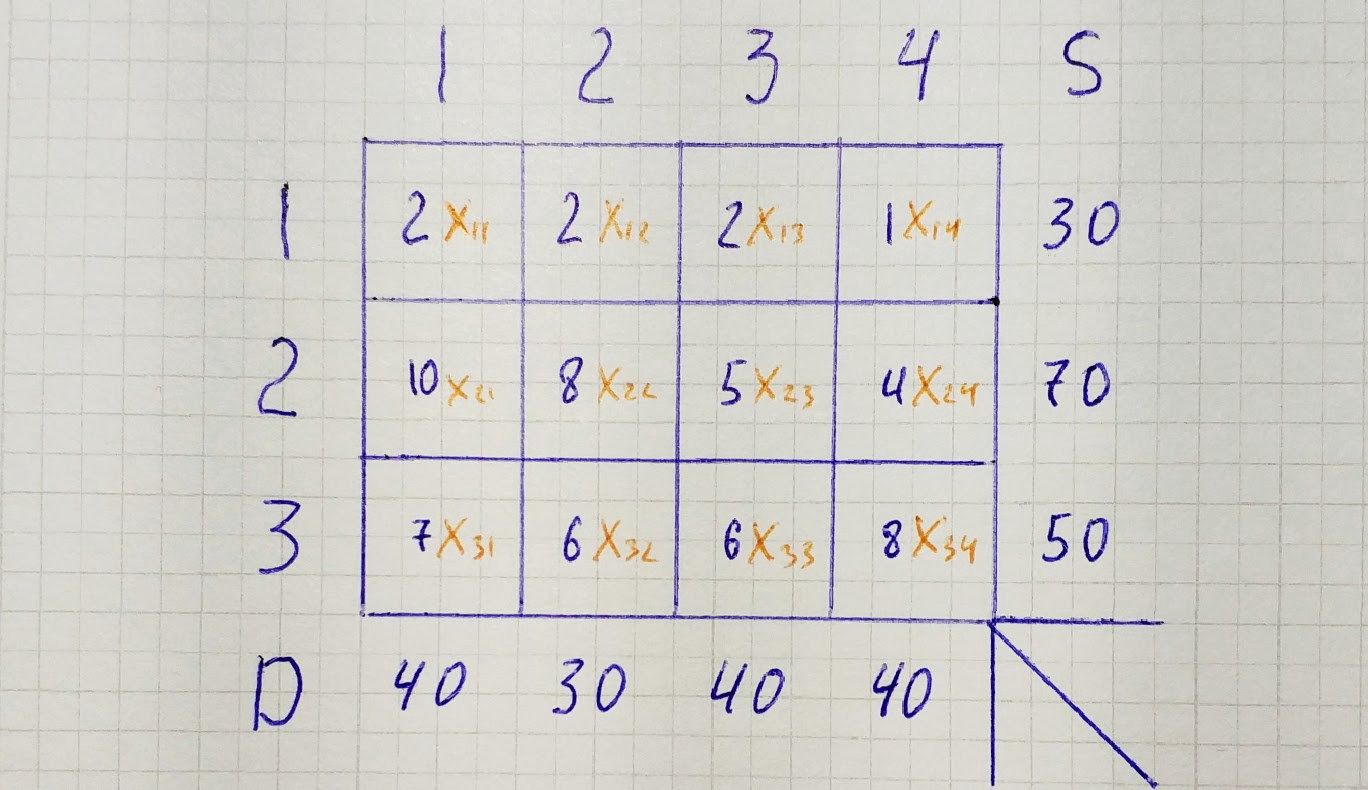 1 2 3 4 S
1 2 X11 2 X12 2 X13 1 X14 30
2 10 X21 8 X22 5 X23 4 X24 70
3 7 X31 6 X32 6 X33 8 X34 50
D 40 30 40 40